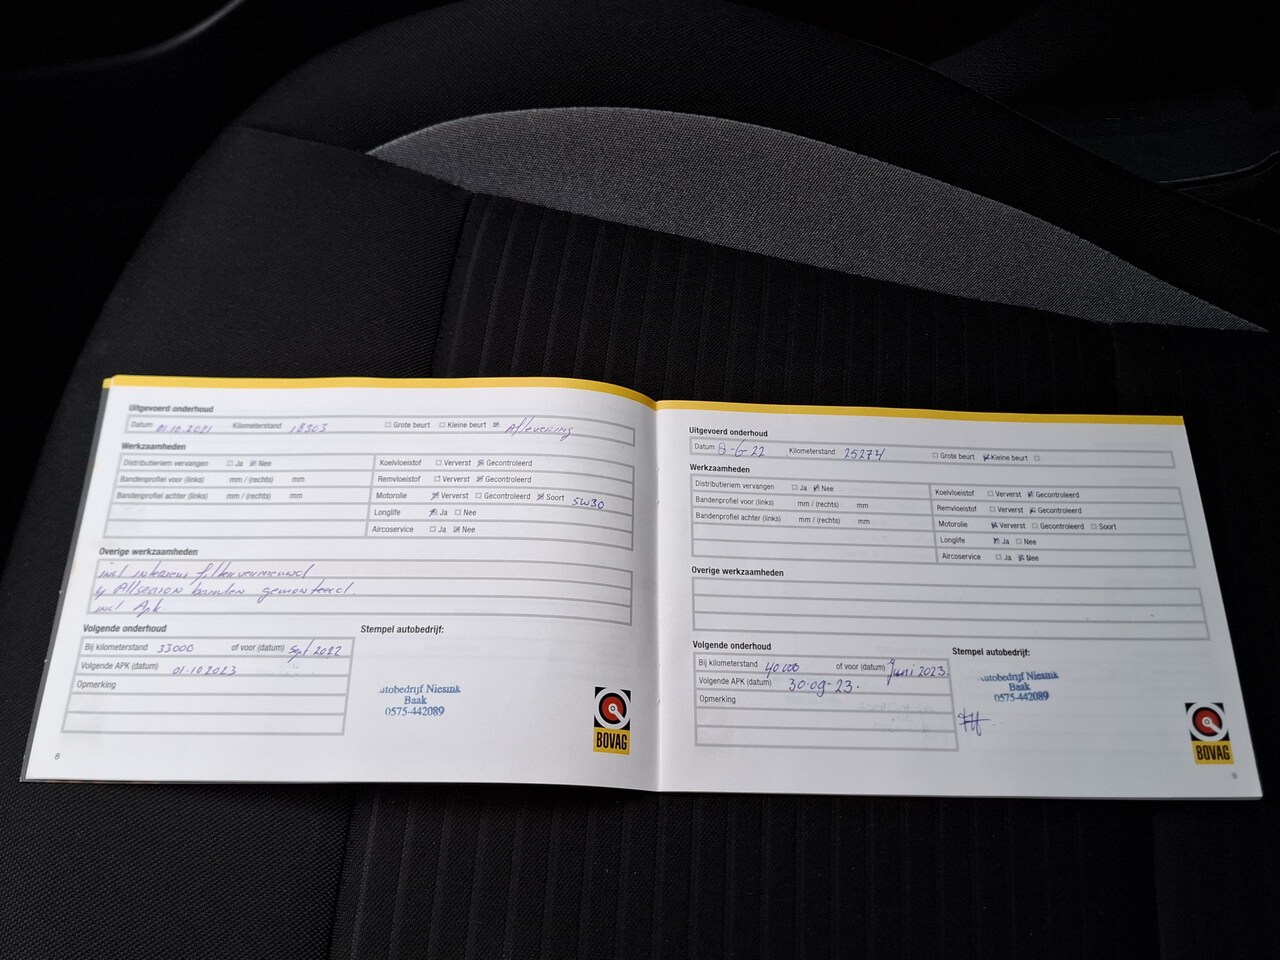 Uitgevoerd onderhoud
Datum 01.10.2021 Kilometerstand 18303 Grote beurt Kleine beurt Aflevering
Werkzaamheden
Distributieriem vervangen Ja Nee
Bandenprofiel voor (links) mm / (rechts) mm
Bandenprofiel achter (links) mm / (rechts) mm
Koelvloeistof Ververst Gecontroleerd
Remvloeistof Ververst Gecontroleerd
Motorolie Ververst Gecontroleerd Soort 5W30
Longlife Ja Nee
Aircoservice Ja Nee
Overige werkzaamheden
incl interieur filter vernieuwd
4 Allseason banden gemonteerd.
incl Apk.
Volgende onderhoud
Bij kilometerstand 33000 of voor (datum) Sep/ 2022
Volgende APK (datum) 01-10 2023
Opmerking
Stempel autobedrijf:
utobedrijf Niesink
Baak
0575-442089
BOVAG
8
Uitgevoerd onderhoud
Datum 8-6 22 Kilometerstand 25274 Grote beurt Kleine beurt
Werkzaamheden
Distributieriem vervangen Ja Nee
Bandenprofiel voor (links) mm / (rechts) mm
Bandenprofiel achter (links) mm / (rechts) mm
Koelvloeistof Ververst Gecontroleerd
Remvloeistof Ververst Gecontroleerd
Motorolie Ververst Gecontroleerd Soort
Longlife Ja Nee
Aircoservice Ja Nee
Overige werkzaamheden
Volgende onderhoud
Bij kilometerstand 40.000 of voor (datum) Juni 2023
Volgende APK (datum) 30-09-23.
Opmerking
Stempel autobedrijf:
utobedrijf Niesink
Baak
0575-442089
BOVAG
9